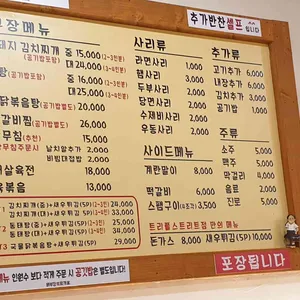 추가반찬 셀프 입니다
포장메뉴
돼지 김치찌개 중 15,000 (2~3인분)
(공기밥포함) 대 20,000 (3~4인분)
중 16,000 (2~3인분)
대 25,000 (3~4인분)
닭볶음탕 (공기밥별도) 26,000
갈비찜 (공기밥별도) 26,000
무침 (추천) 15,000
날치알추가 2,000
비빔야채 2,000
18,000
13,000
사리류
라면사리 1,000
햄사리 3,000
두부사리 2,000
당면사리 2,000
수제비사리 2,000
우동사리 2,000
사이드메뉴
계란말이 8,000
떡갈비 6,000
스팸구이 3,500
추가류
고기추가 6,000
내장추가 6,000
김치추가 4,000
공기밥 1,000
주류
소주 5,000
맥주 5,000
막걸리 4,000
음료 2,000
진로 5,000
김치찌개(중)+새우튀김(5P) 24,000
김치찌개(대)+새우튀김(5P) 33,000
동태탕(중)+새우튀김(5P) 25,000
동태탕(대)+새우튀김(5P) 34,000
국물닭볶음탕+새우튀김(5P) 29,000
트리플스트리트점 만의 메뉴
돈가스 8,000 새우튀김(5P) 10,000
메뉴 인원수 보다 적게 주문 시 공기밥은 별도입니다!
포장됩니다